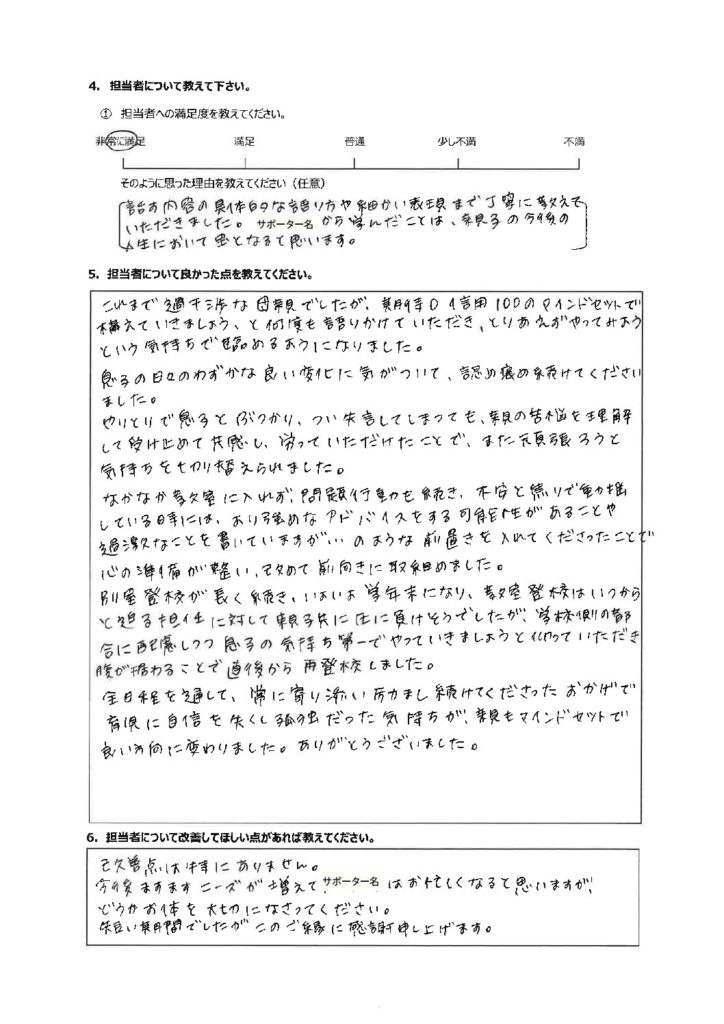 4. 担当者について教えて下さい。
① 担当者への満足度を教えてください。
非常に満足 満足 普通 少し不満 不満
そのように思った理由を教えてください（任意）
話す内容の具体的な語り方や細かい表現まで丁寧に教えて
いただきました。サポーター名から学んだことは、親子の今後の
人生において宝となると思います。
5. 担当者について良かった点を教えてください。
これまで過干渉な母親でしたが、期待0信用100のマインドセットで
構えていきましょう、と何度も語りかけていただき、とりあえずやってみよう
という気持ちで臨めるようになりました。
息子の日々のわずかな良い変化に気がついて、認め褒め続けてください
ました。
やりとりで息子とぶつかり、つい失言してしまっても、親の苦悩を理解
して受け止めて共感し、労っていただけたことで、また頑張ろうと
気持ちを切り替えられました。
なかなか教室に入れず、問題行動も続き、不安と焦りで動揺
している時には、より強めなアドバイスをする可能性があることや
過激なことを書いていますが…のような前置きを入れてくださったことで
心の準備が整い、改めて前向きに取組めました。
別室登校が長く続き、いよいよ学年末になり、教室登校はいつから
と迫る担任に対して親子共に圧に負けそうでしたが、学校側の都
合に配慮しつつ息子の気持ち第一でやっていきましょうと仰っていただき
腹が据わることで直後から再登校しました。
全日程を通して、常に寄り添い励まし続けてくださったおかげで
育児に自信を失くし孤独だった気持ちが、親もマインドセットで
良い方向に変わりました。ありがとうございました。
6. 担当者について改善してほしい点があれば教えてください。
改善点は特にありません。
今後ますますニーズが増えて サポーター名 はお忙しくなると思いますが、
どうかお体を大切になさってください。
短い期間でしたがこのご縁に感謝申し上げます。